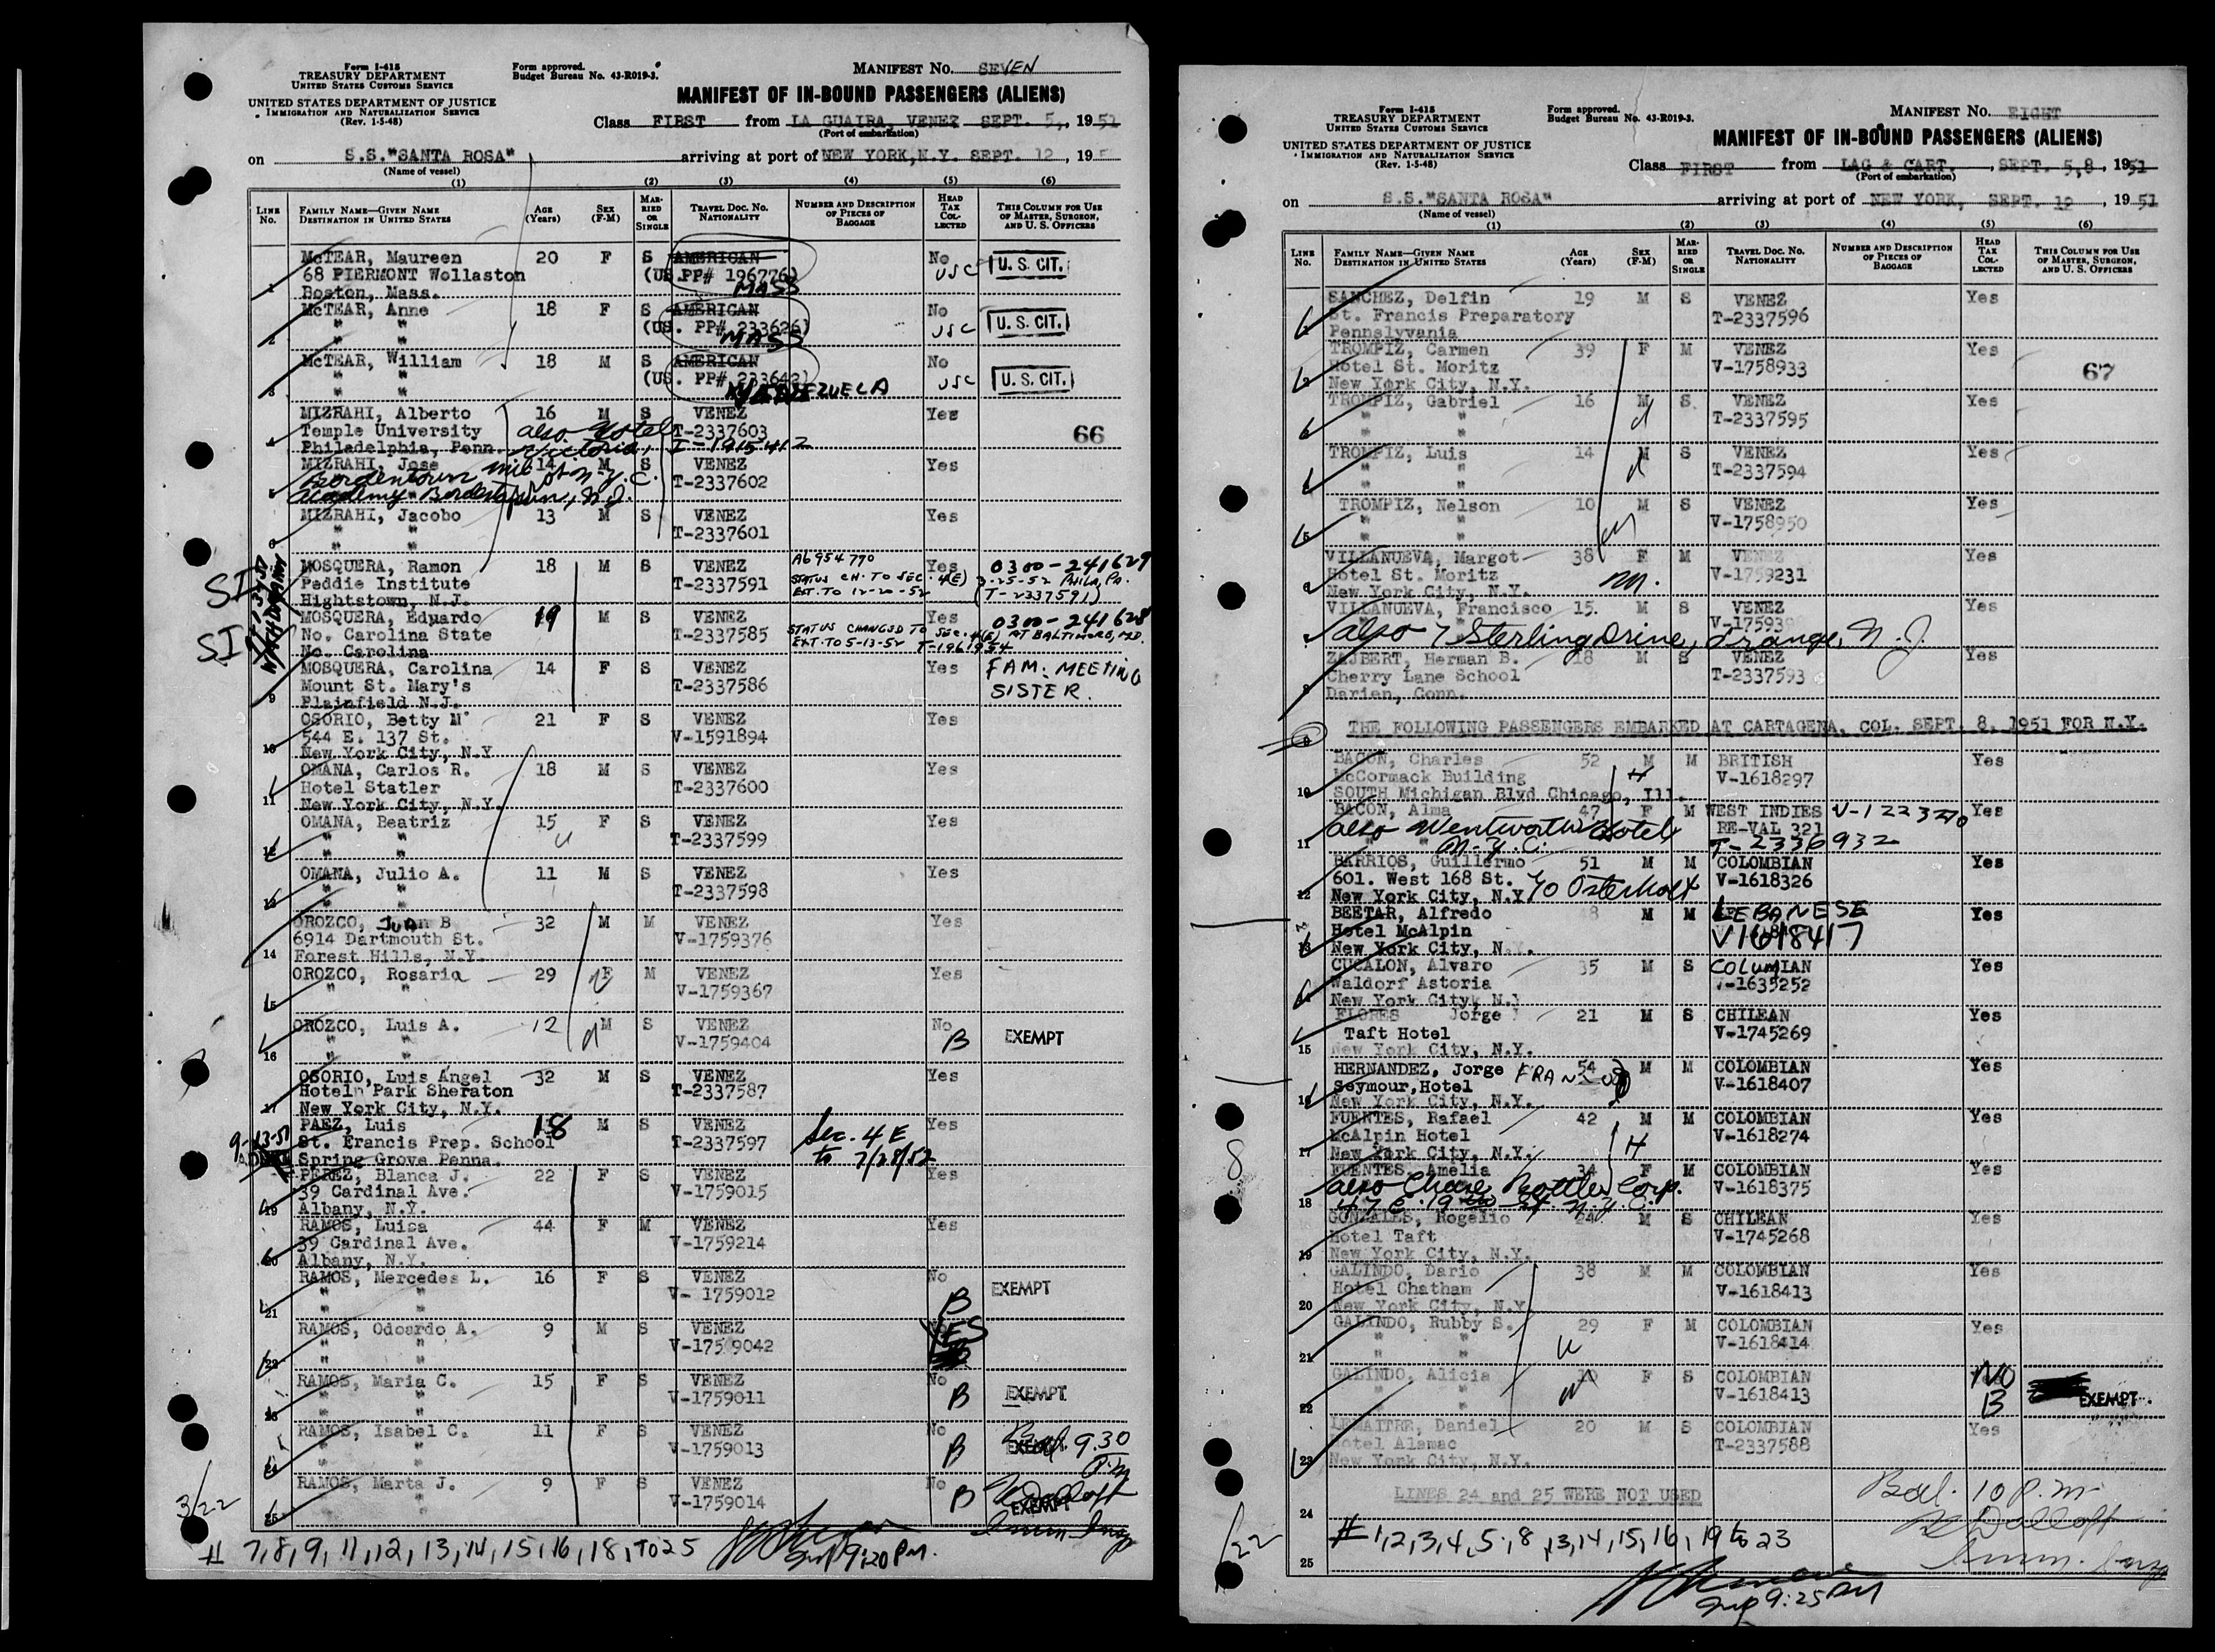 Form I-418
TREASURY DEPARTMENT
UNITED STATES CUSTOMS SERVICE
UNITED STATES DEPARTMENT OF JUSTICE
IMMIGRATION AND NATURALIZATION SERVICE
(Rev. 1-5-48)
Form approved.
Budget Bureau No. 43-R019-3.
MANIFEST No. SEVEN
MANIFEST OF IN-BOUND PASSENGERS (ALIENS)
Class FIRST from LA GUAIRA, VENEZ SEPT. 5, , 1951
(Port of embarkation)
on S.S."SANTA ROSA" arriving at port of NEW YORK,N.Y. SEPT. 12 , 195
(Name of vessel)
(1) (2) (3) (4) (5) (6)
LINE No. FAMILY NAME—GIVEN NAME DESTINATION IN UNITED STATES AGE (Years) SEX (F-M) MARRIED OR SINGLE TRAVEL DOC. No. NATIONALITY NUMBER AND DESCRIPTION OF PIECES OF BAGGAGE HEAD TAX COLLECTED THIS COLUMN FOR USE OF MASTER, SURGEON, AND U. S. OFFICERS
McTEAR, Maureen 20 F S AMERICAN No U. S. CIT.
68 PIERMONT Wollaston (US.PP# 196776) USC
1 Boston, Mass. MASS
McTEAR, Anne 18 F S AMERICAN No U. S. CIT.
" " (US. PP# 233626) USC
2 MASS
McTEAR, William 18 M S AMERICAN No U. S. CIT.
" " (US. PP# 233642) USC
3 " " VENEZUELA
MIZRAHI, Alberto 16 M S VENEZ Yes
4 Temple University also Hotel T-2337603 66
Philadelphia, Penn. Victoria, I-1915412
MIZRAHI, Jose 14 M S VENEZ Yes
5 Bordentown Mil N.Y.C. T-2337602
Academy Bordentown, N.J.
MIZRAHI, Jacobo 13 M S VENEZ Yes
" " T-2337601
6 " "
MOSQUERA, Ramon 18 M S VENEZ A6954770 Yes 0300-241629
SI Peddie Institute T-2337591 STATUS CH. TO SEC. 4(E) 3-25-52 PHILA, PA.
Hightstown, N.J. EXT. TO 12-20-52 (T-2337591)
MOSQUERA, Eduardo 19 M S VENEZ Yes 0300-241628
SI No. Carolina State T-2337585 STATUS CHANGED TO SEC. 4(E) AT BALTIMORE, MD.
No. Carolina EXT. TO 5-13-52 T-1961954
MOSQUERA, Carolina 14 F S VENEZ Yes FAM: MEETING
Mount St. Mary's T-2337586 SISTER.
9 Plainfield N.J.
OSORIO, Betty M 21 F S VENEZ Yes
544 E. 137 St. V-1591894
10 New York City, N.Y
OMANA, Carlos R. 18 M S VENEZ Yes
Hotel Statler T-2337600
11 New York City, N.Y.
OMANA, Beatriz 15 F S VENEZ Yes
" " T-2337599
12 " "
OMANA, Julio A. 11 M S VENEZ Yes
" " T-2337598
13
OROZCO, JUAN B 32 M M VENEZ Yes
6914 Dartmouth St. V-1759376
14 Forest Hills, N.Y.
OROZCO, Rosaria 29 F M VENEZ Yes
15 " " V-1759367
OROZCO, Luis A. 12 M S VENEZ No EXEMPT
" " V-1759404 B
16 " "
OSORIO, Luis Angel 32 M S VENEZ Yes
Hotel Park Sheraton T-2337587
17 New York City, N.Y.
PAEZ, Luis 18 M S VENEZ Yes
9-13-51 St. Francis Prep. School T-2337597 Sec. 4 E
Spring Grove Penna. to 7/28/52
PEREZ, Blanca J. 22 F S VENEZ Yes
39 Cardinal Ave. V-1759015
19 Albany, N.Y.
RAMOS, Luisa 44 F M VENEZ Yes
39 Cardinal Ave. V-1759214
20 Albany, N.Y.
RAMOS, Mercedes L. 16 F S VENEZ No EXEMPT
" " V- 1759012 B
21 " "
RAMOS, Odoardo A. 9 M S VENEZ YES
" " V-1759042
22 " "
RAMOS, Maria C. 15 F S VENEZ No
" " V-1759011 B EXEMPT
23 " "
RAMOS, Isabel C. 11 F S VENEZ No
" " V-1759013 B EXEMPT Bal 9.30
24 " " P.M
RAMOS, Marta J. 9 F S VENEZ No
3/22 " " V-1759014 B EXEMPT
25 " "
# 7, 8, 9, 11, 12, 13, 14, 15, 16, 18, TO 25 9:20 P.M.
Form I-418
TREASURY DEPARTMENT
UNITED STATES CUSTOMS SERVICE
UNITED STATES DEPARTMENT OF JUSTICE
IMMIGRATION AND NATURALIZATION SERVICE
(Rev. 1-5-48)
Form approved.
Budget Bureau No. 43-R019-3.
MANIFEST No. EIGHT
MANIFEST OF IN-BOUND PASSENGERS (ALIENS)
Class FIRST from LAG & CART. , SEPT. 5,8 , 1951
(Port of embarkation)
on S.S."SANTA ROSA" arriving at port of NEW YORK, SEPT. 12 , 1951
(Name of vessel)
(1) (2) (3) (4) (5) (6)
LINE No. FAMILY NAME—GIVEN NAME DESTINATION IN UNITED STATES AGE (Years) SEX (F-M) MARRIED OR SINGLE TRAVEL DOC. No. NATIONALITY NUMBER AND DESCRIPTION OF PIECES OF BAGGAGE HEAD TAX COLLECTED THIS COLUMN FOR USE OF MASTER, SURGEON, AND U. S. OFFICERS
SANCHEZ, Delfin 19 M S VENEZ Yes
St. Francis Preparatory T-2337596
Pennslyvania
TROMPIZ, Carmen 39 F M VENEZ Yes
Hotel St. Moritz V-1758933 67
New York City, N.Y.
TROMPIZ, Gabriel 16 M S VENEZ Yes
" " T-2337595
" "
TROMPIZ, Luis 14 M S VENEZ Yes
" " T-2337594
TROMPIZ, Nelson 10 M S VENEZ Yes
" " V-1758950
" "
VILLANUEVA, Margot 38 F M VENEZ Yes
Hotel St. Moritz V-1759231
New York City, N.Y.
VILLANUEVA, Francisco 15. M S VENEZ Yes
also 7 Sterling Drive, Orange, N.J.
ZAJBERT, Herman B. 18 M S VENEZ Yes
Cherry Lane School T-2337593
8 Darien, Conn.
9 THE FOLLOWING PASSENGERS EMBARKED AT CARTAGENA, COL. SEPT. 8, 1951 FOR N.Y.
BACON, Charles 52 M M BRITISH Yes
McCormack Building H V-1618297
10 SOUTH Michigan Blvd Chicago, Ill.
BACON, Alma 47 F M WEST INDIES V-122370 Yes
also Wentworth Hotel RE-VAL 321
11 N.Y.C. T-2336932
BARRIOS, Guillermo 51 M M COLOMBIAN Yes
601. West 168 St. V-1618326
12 New York City, N.Y. c/o Osterholt
BEETAR, Alfredo 48 M M LEBANESE Yes
Hotel McAlpin V1618417
13 New York City, N.Y.
CUCALON, Alvaro 35 M S COLUMIAN Yes
Waldorf Astoria V-1635252
New York City, N.Y
FLORES Jorge 21 M S CHILEAN Yes
Taft Hotel V-1745269
15 New York City, N.Y.
HERNANDEZ, Jorge 54 M M COLOMBIAN Yes
Seymour,Hotel V-1618407
16 New York City, N.Y.
FUENTES, Rafael 42 M M COLOMBIAN Yes
McAlpin Hotel V-1618274
17 New York City, N.Y. H
FUENTES, Amelia 34 F M COLOMBIAN Yes
8 also Chase Bottle Corp. V-1618375
18 47 E. 19 St. N.Y.C.
GONZALES, Rogelio 24 M S CHILEAN Yes
Hotel Taft V-1745268
19 New York City, N.Y.
GALINDO, Dario 38 M M COLOMBIAN Yes
Hotel Chatham V-1618413
20 New York City, N.Y
GALINDO, Rubby S. 29 F M COLOMBIAN Yes
" " V-1618414
21 " "
GALINDO, Alicia 10 F S COLOMBIAN NO
" " V-1618413 B EXEMPT
22
LEMAITRE, Daniel 20 M S COLOMBIAN Yes
Hotel Alamac T-2337588
23 New York City, N.Y.
LINES 24 and 25 WERE NOT USED Bal. 10 P.M
24
1/22 # 1, 2, 3, 4, 5, 8, 13, 14, 15, 16, 19 to 23
25
9:25 PM